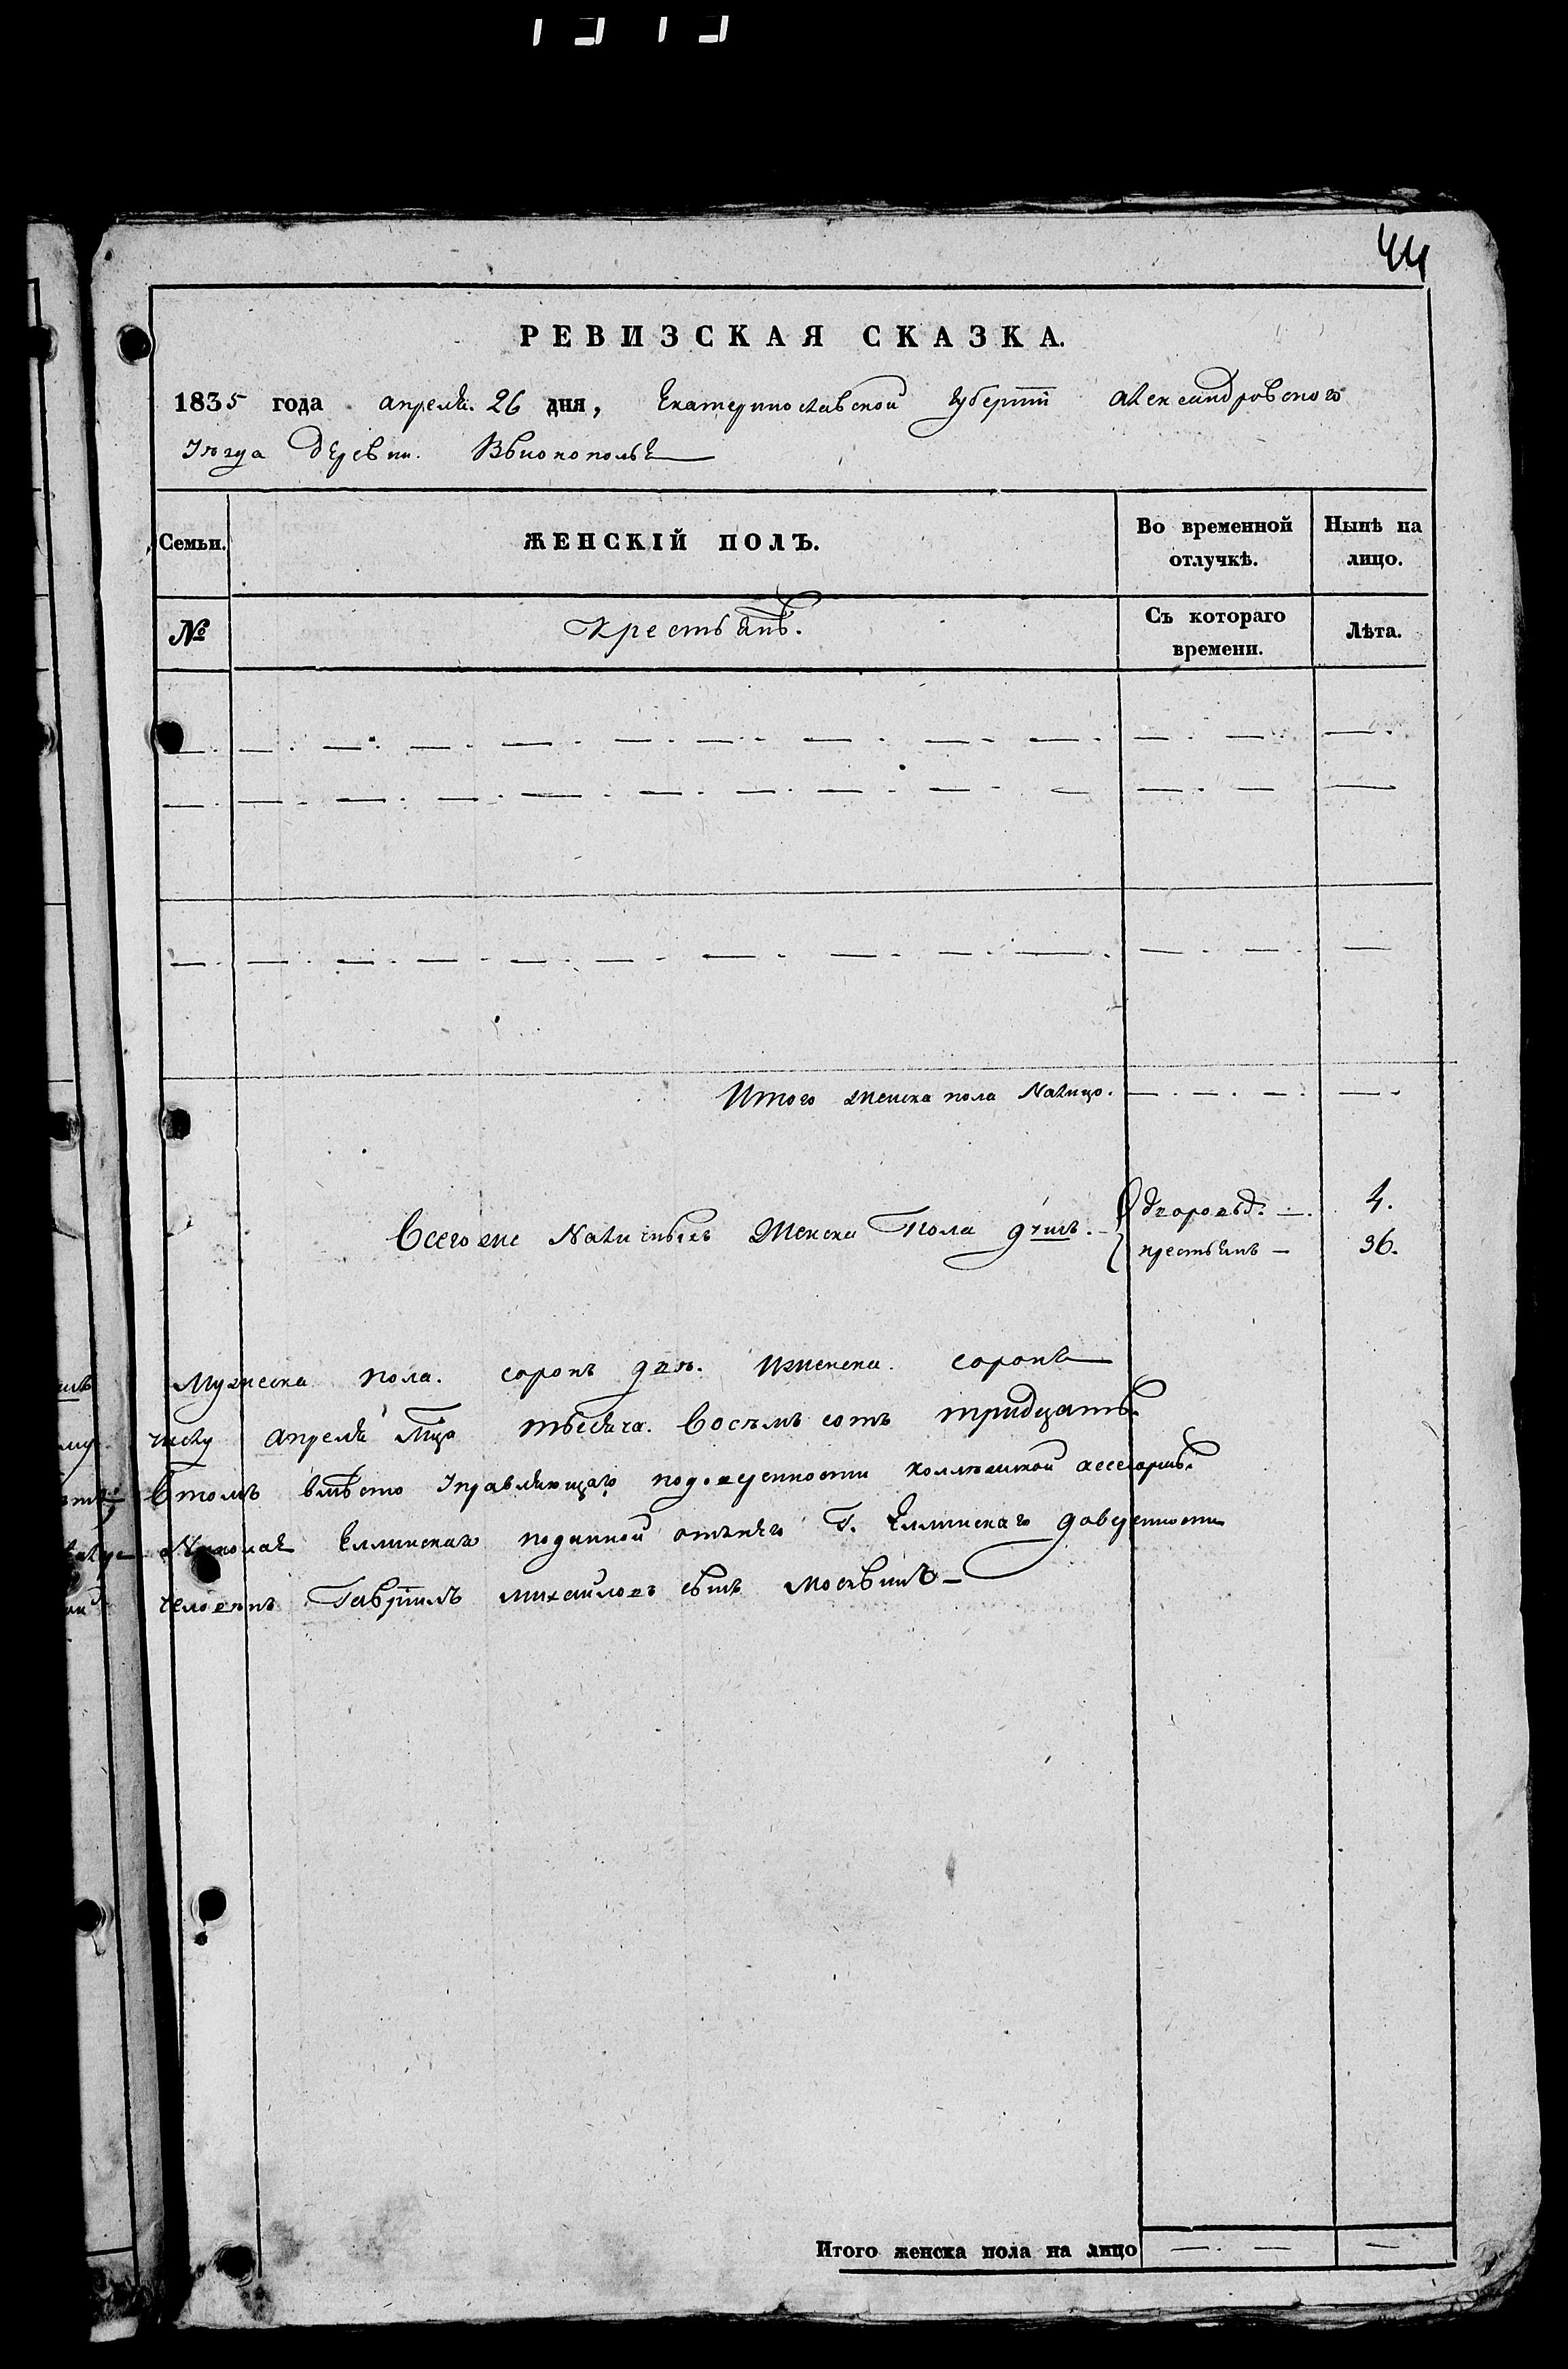 44
РЕВИЗСКАЯ СКАЗКА.
1835 года апреля. 26 дня, Екатеринославской Губернии Александровского
Уезда деревни.
Семьи. ЖЕНСКІЙ ПОЛЪ. Во временной отлучкѣ. Нынѣ на лицо.
№ Крестьянъ. Съ котораго времени. Лѣта.
Итого женска пола Налицо.
Всегоже Наличныхъ Женска Пола душъ. дворовыхъ. 4.
крестьянъ 36.
Мужеска пола. сорокъ два. Иженска. сорокъ
числу апреля Мца тысяча. Восемъ сотъ тридцать
Втомъ вмѣсто Управляющаго подоверенности коллежской
Николая Еллинскаго поданной отнего Г. Еллинскаго доверенности
человекъ Гавріилъ михайловъ сынъ Москвинъ
Итого женска пола на лицо